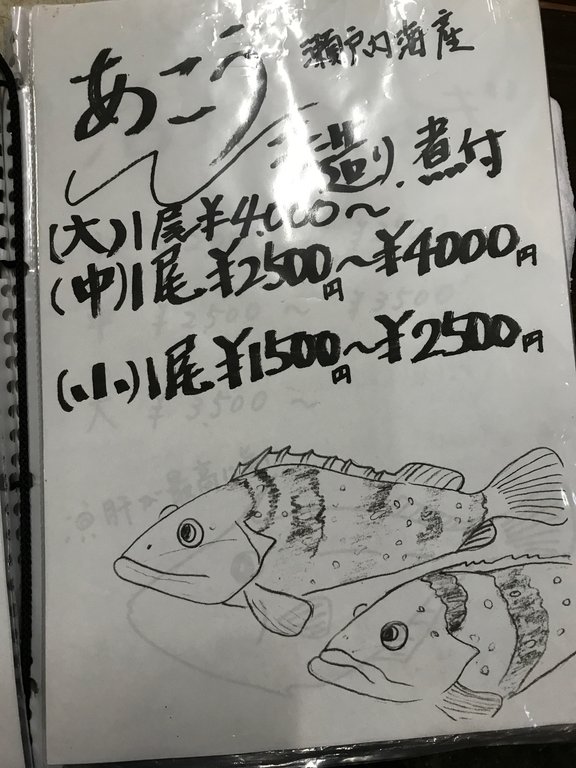 あこう 瀬戸内海産
造り、煮付
(大)1尾¥4,000〜
(中)1尾¥2500円〜¥4000円
(小)1尾¥1500円〜¥2500円